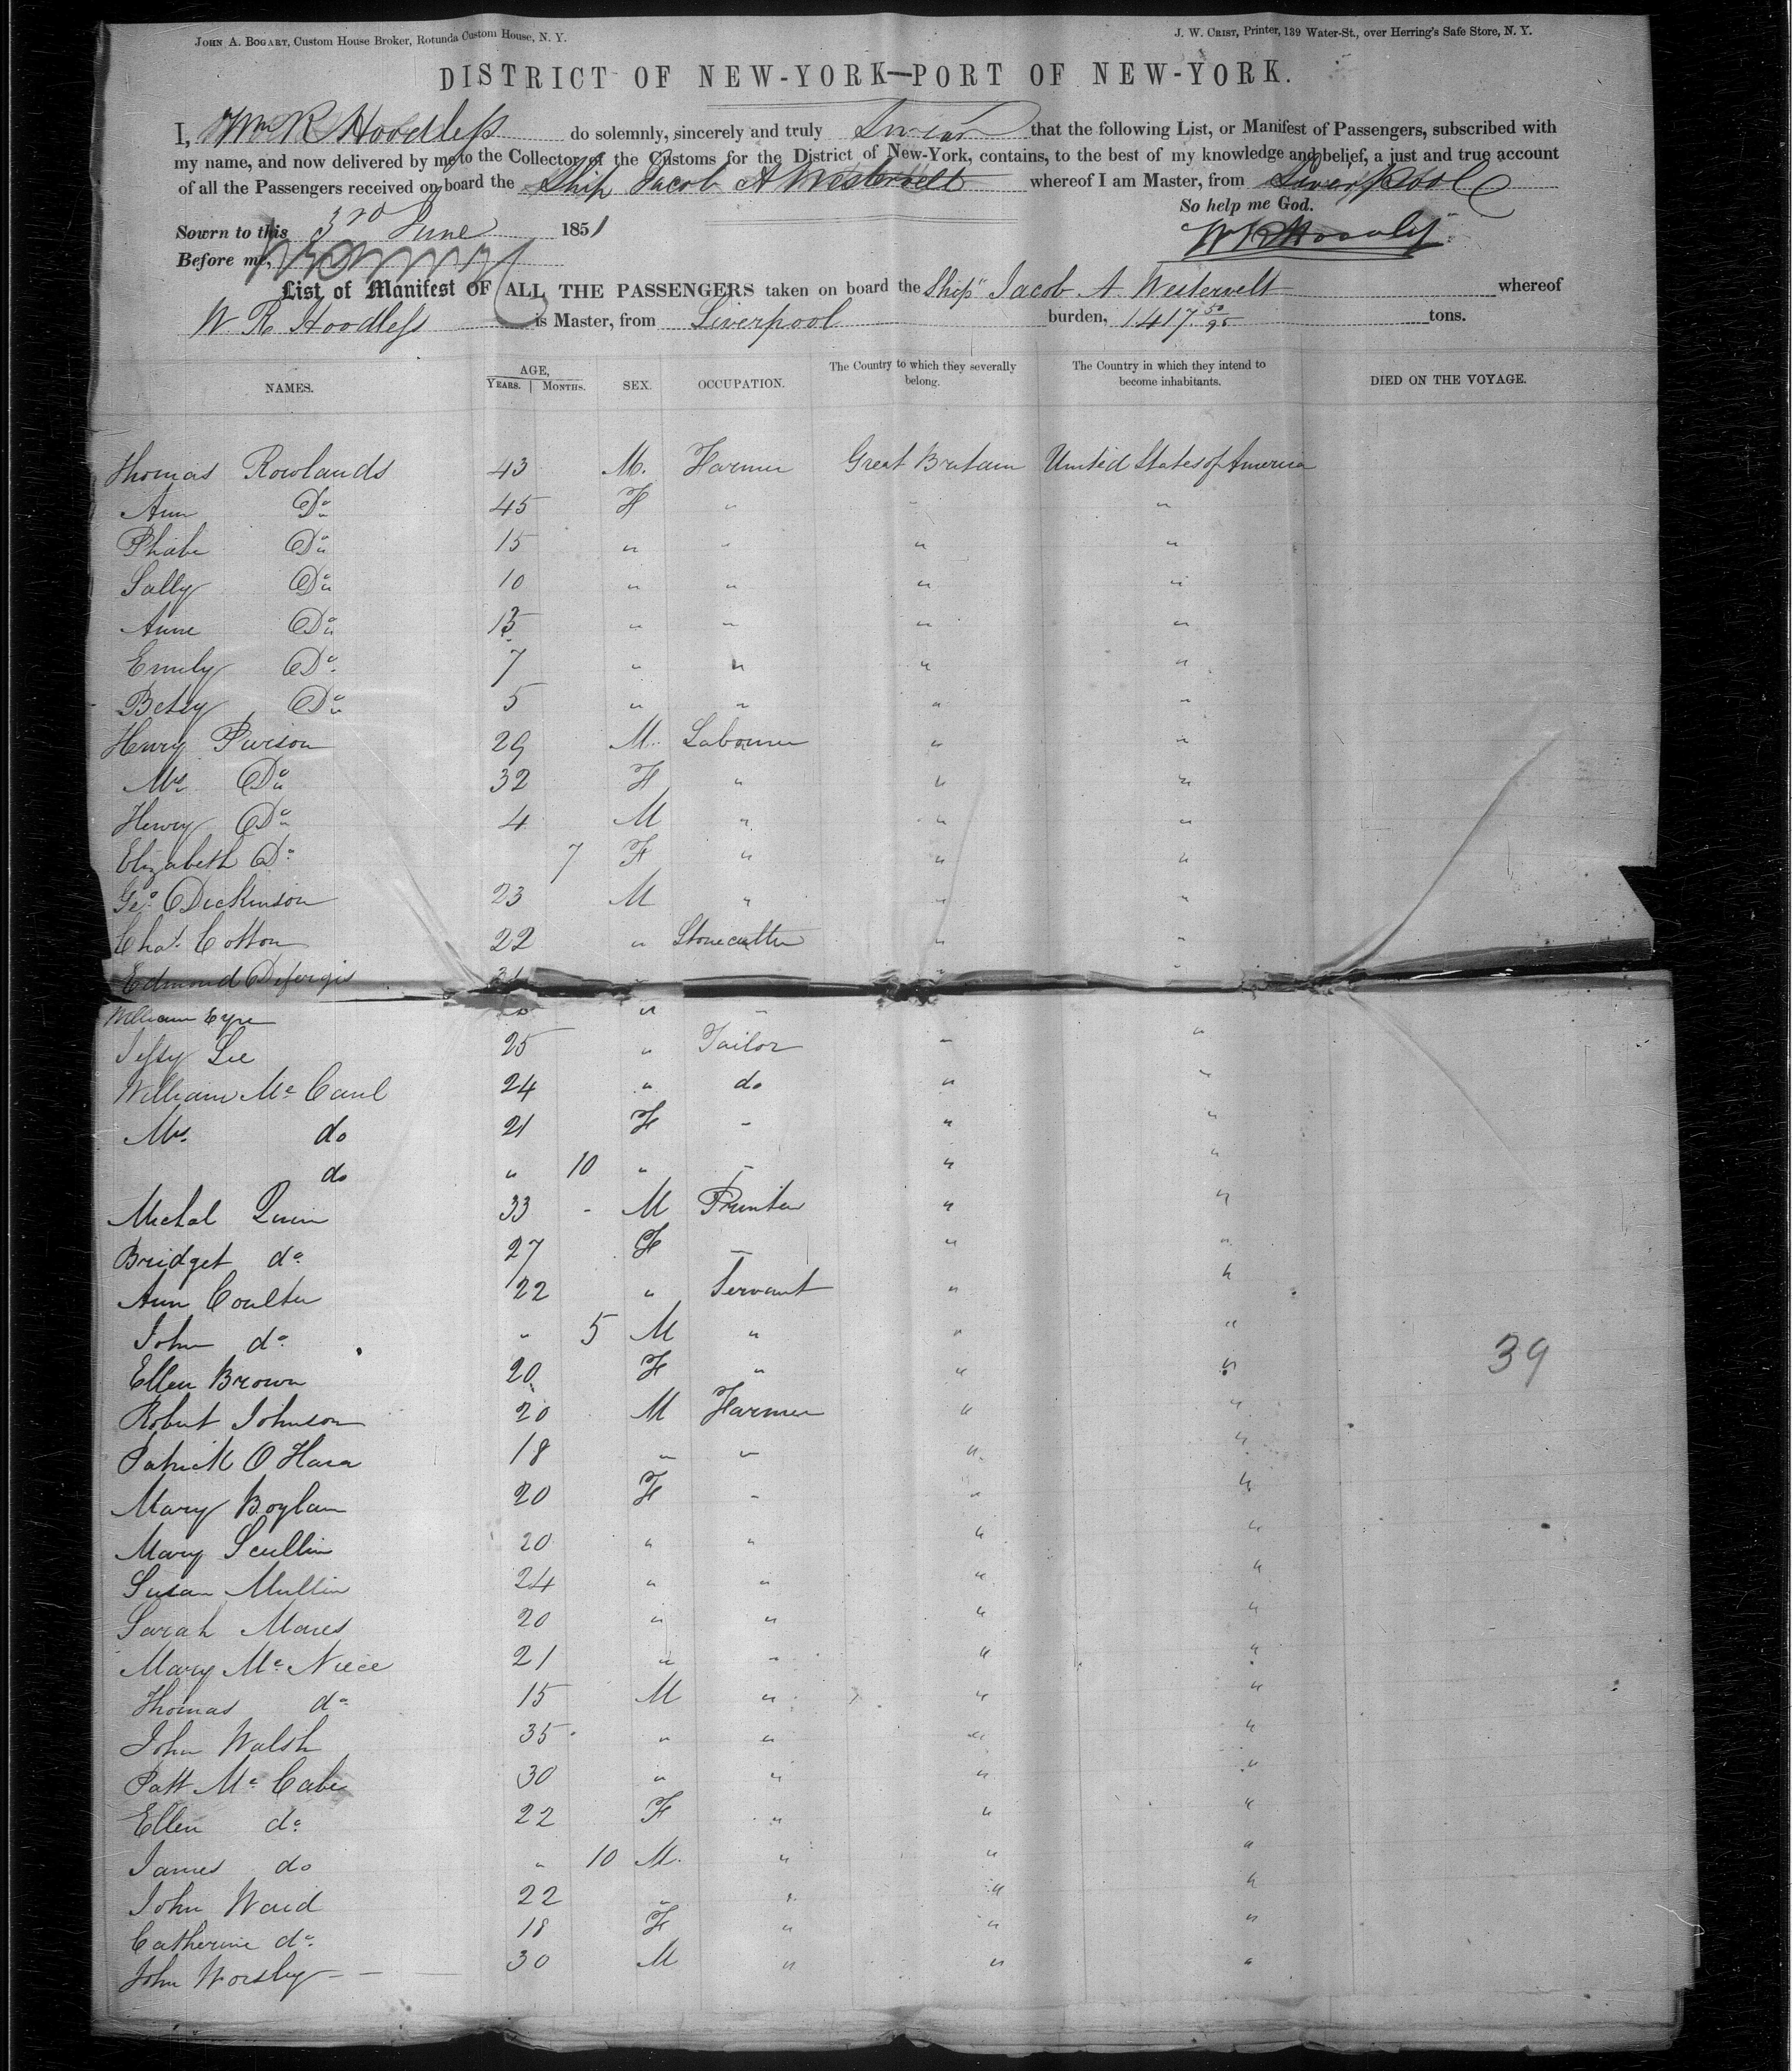 JOHN A. BOGART, Custom House Broker, Rotunda Custom House, N. Y.
J. W. CRIST, Printer, 139 Water-St., over Herring's Safe Store, N. Y.
DISTRICT OF NEW-YORK—PORT OF NEW-YORK.
I, Wm R Hoodless do solemnly, sincerely and truly Swear that the following List, or Manifest of Passengers, subscribed with
my name, and now delivered by me to the Collector of the Customs for the District of New-York, contains, to the best of my knowledge and belief, a just and true account
of all the Passengers received on board the Ship Jacob A Westervelt whereof I am Master, from Liverpool
So help me God.
Sowrn to this 3rd June 1851
W R Hoodless
Before me,
List of Manifest OF ALL THE PASSENGERS taken on board the Ship "Jacob A. Westervelt whereof
W. R. Hoodless is Master, from Liverpool burden, 1417 50/95 tons.
NAMES. AGE, YEARS. MONTHS. SEX. OCCUPATION. The Country to which they severally belong. The Country in which they intend to become inhabitants. DIED ON THE VOYAGE.
Thomas Rowlands 43 M. Farmer Great Britain United States of America
Ann Do 45 F " " "
Phabe Do 15 " " " "
Sally Do 10 " " " "
Anne Do " " " "
Emily Do 7 " " " "
Betsy Do 5 " " " "
Henry Pierson 29 M. Labourer " "
Mrs Do 32 F " " "
Henry Do 4 M " " "
Elizabeth Do 7 F " " "
Geo. Dickinson 23 M " " "
Chas. Cotton 22 " Stonecutter " "
Edmond
William Eyre " "
Lee 25 " Tailor " "
William Mc 24 " do " "
Mrs. do 21 F " " "
do " 10 " " " "
Michal Quin 33 - M Printer " "
Bridget do 27 F — " "
Ann Coulter 22 " Servant " "
John do " 5 M " " "
39
Ellen Brown 20 F " " "
Robert Johnson 20 M Farmer " "
Patrick O Hara 18 " " " "
Mary Boylan 20 F " " "
Mary Scullin 20 " " " "
Susan Mullin 24 " " " "
Sarah 20 " " " "
Mary Mc Niece 21 " " " "
Thomas do 15 M " " "
John Walsh 35 " " " "
Patt Mc Cabe 30 " " " "
Ellen do 22 F " " "
James do " 10 M. " " "
John Ward 22 " " " "
Catherine do 18 F " " "
John Worsley 30 M " " "